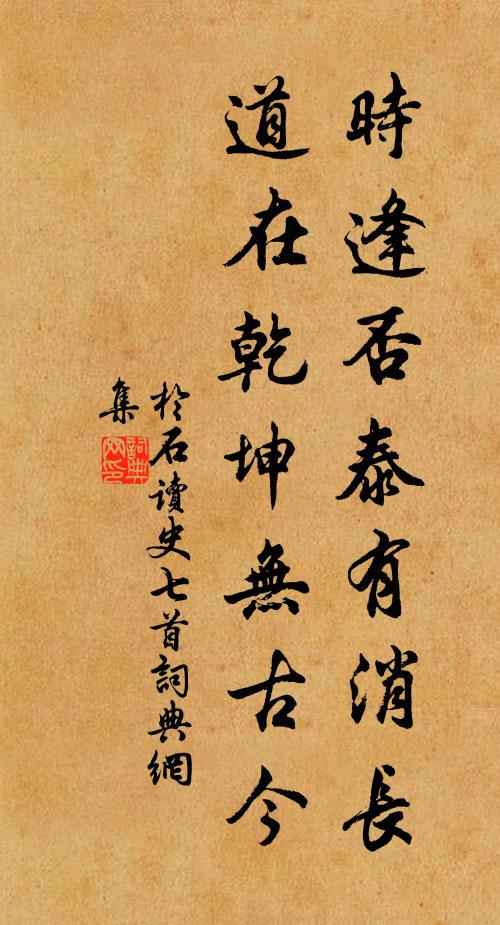 時逢否泰有消長
道在乾坤無古今
於石讀史七首詞典網
集
詞典網印